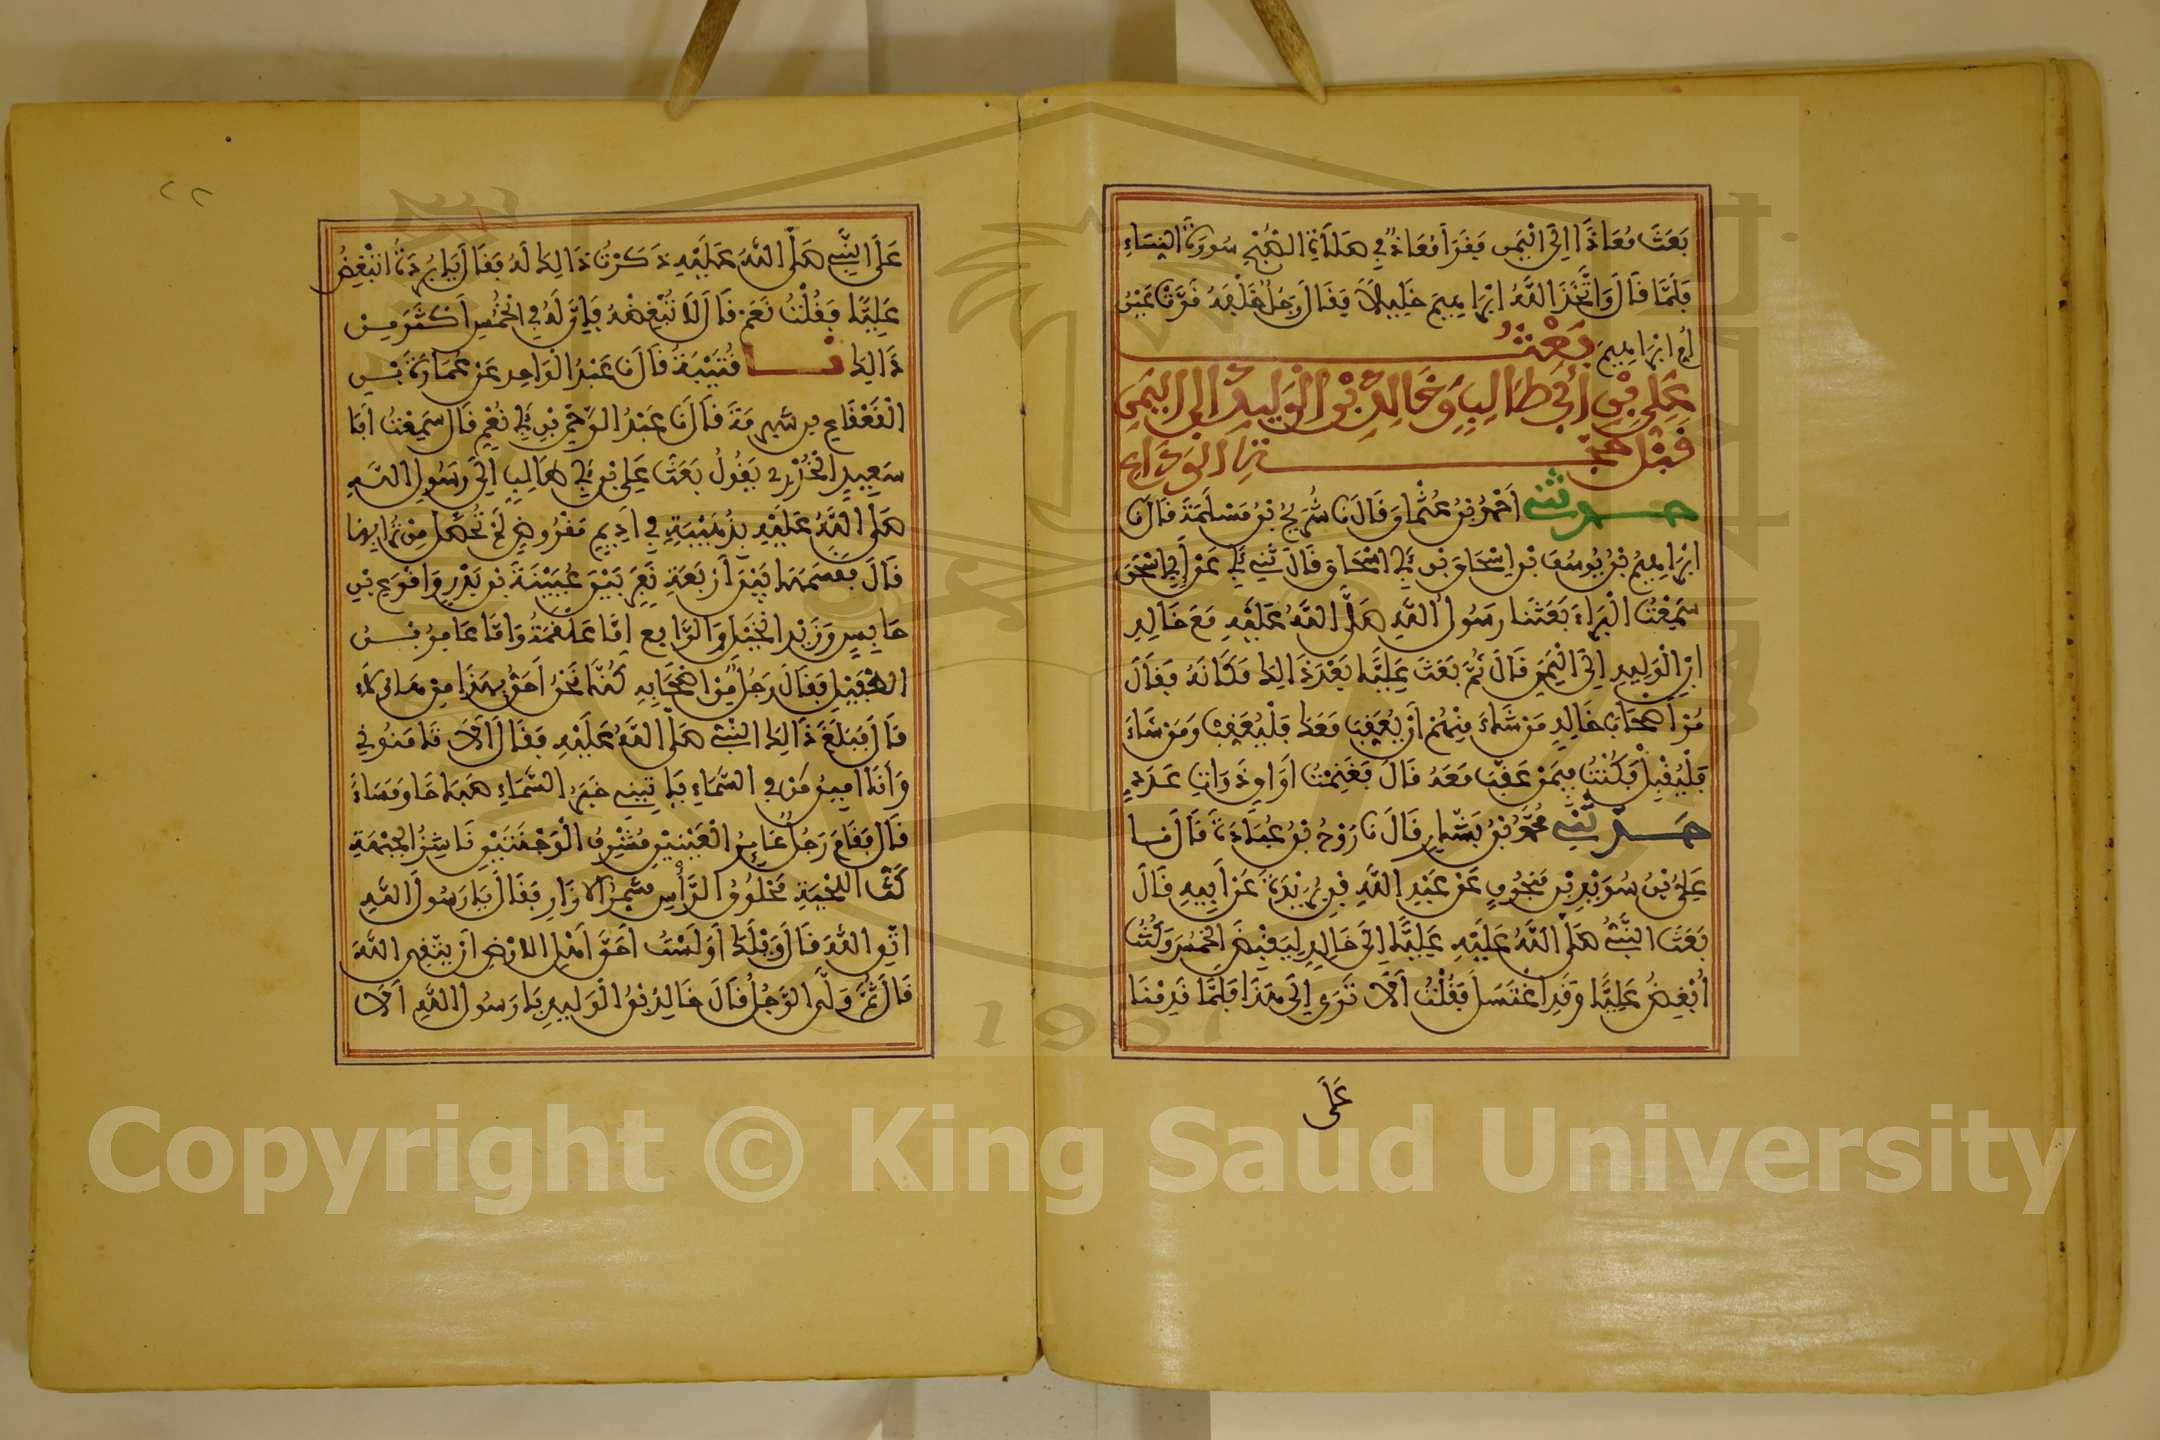 بَعَثَ مُعَاذًا اِلَى الْيَمَنِ فَقَرَأَ مُعَاذٌ فِي صَلَاةِ الصُّبْحِ سُورَةَ النِّسَاءِ
فَلَمَّا قَالَ وَاتَّخَذَ اللَّهُ ابْرَاهِيمَ خَلِيلًا فَقَالَ رَجُلٌ خَلْفَهُ قَرَّتْ عَيْنُ
أُمِّ ابْرَاهِيمَ بَعْثُ
عَلِيِّ بْنِ أَبِي طَالِبٍ وَخَالِدِ بْنِ الْوَلِيدِ إلى الْيَمَنِ
قَبْلَ حَجَّةِ الْوَدَاعِ
حدثني أَحْمَدُ بْنُ عُثْمَانَ قَالَ نَا شُرَيْحُ بْنُ مَسْلَمَةَ قَالَ نَا
ابْرَاهِيمُ بْنُ يُوسُفَ بْنِ اِسْحَاقَ بْنِ أَبِي اسْحَاقَ قَالَ ثَنِي أَبِي عَنْ أَبِي اسْحَقَ
سَمِعْتُ الْبَرَاءَ بَعَثَنَا رَسُولُ اللَّهِ صَلَّى اللَّهُ عَلَيْهِ مَعَ خَالِدِ
ابْنِ الْوَلِيدِ اِلَى الْيَمَنِ قَالَ ثُمَّ بَعَثَ عَلِيًّا بَعْدَ ذَالِكَ مَكَانَهُ فَقَالَ
مُرْ أَصْحَابَ خَالِدٍ مَنْ شَاءَ مِنْهُمْ أَنْ يُعَقِّبَ مَعَكَ فَلْيُعَقِّبْ وَمَنْ شَاءَ
فَلْيُقْبِلْ فَكُنْتُ فِيمَنْ عَقَّبَ مَعَهُ قَالَ فَغَنِمْتُ أَوَاقٍ ذَوَاتِ عَدَدٍ
حدثني مُحَمَّدُ بْنُ بَشَّارٍ قَالَ نَا رَوْحُ بْنُ عُبَادَةَ قَالَ نَا
عَلِيُّ بْنُ سُوَيْدِ بْنِ مَنْجُوفٍ عَنْ عَبْدِ اللَّهِ بْنِ بُرَيْدَةَ عَنْ أَبِيهِ قَالَ
بَعَثَ النَّبِيُّ صَلَّى اللَّهُ عَلَيْهِ عَلِيًّا اِلَى خَالِدٍ لِيَقْبِضَ الْخُمُسَ وَكُنْتُ
أُبْغِضُ عَلِيًّا وَقَدِ اغْتَسَلَ فَقُلْتُ أَلَا تَرَى اِلَى هَذَا فَلَمَّا قَدِمْنَا
عَلَى
٢٢
عَلَى النَّبِيِّ صَلَّى اللَّهُ عَلَيْهِ ذَكَرْتُ ذَالِكَ لَهُ فَقَالَ يَا بُرَيْدَةُ اَتُبْغِضُ
عَلِيًّا فَقُلْتُ نَعَمْ قَالَ لَا تُبْغِضْهُ فَإِنَّ لَهُ فِي الْخُمُسِ أَكْثَرَ مِنْ
ذَالِكَ نَا قُتَيْبَةُ قَالَ نَا عَبْدُ الْوَاحِدِ عَنْ عُمَارَةَ بْنِ
الْقَعْقَاعِ بن شبرمة قَالَ نَا عَبْدُ الرَّحْمَنِ بْنِ أَبِي نُعْمٍ قَالَ سَمِعْتُ أَبَا
سَعِيدٍ الْخُدْرِيَّ يَقُولُ بَعَثَ عَلِيُّ بْنُ أَبِي طَالِبٍ اِلَى رَسُولِ اللَّهِ
صَلَّى اللَّهُ عَلَيْهِ بِذُهَيْبَةٍ فِي أَدِيمٍ مَقْرُوظٍ لَمْ تُحَصَّلْ مِنْ تُرَابِهَا
قَالَ فَقَسَمَهَا بَيْنَ أَرْبَعَةِ نَفَرٍ بَيْنَ عُيَيْنَةَ بْنِ بَدْرٍ وَأَقْرَعَ بْنِ
حَابِسٍ وَزَيْدِ الْخَيْلِ وَالرَّابِعُ إِمَّا عَلْقَمَةُ وَإِمَّا عَامِرُ بْنُ
الطُّفَيْلِ فَقَالَ رَجُلٌ مِنْ اَصْحَابِهِ كُنَّا نَحْنُ أَحَقَّ بِهَذَا مِنْ هَؤُلَاءِ
قَالَ فَبَلَغَ ذَالِكَ النَّبِيَّ صَلَّى اللَّهُ عَلَيْهِ فَقَالَ أَلَا تَأْمَنُونِي
وَأَنَا أَمِينُ مَنْ فِي السَّمَاءِ يَأْتِينِي خَبَرُ السَّمَاءِ صَبَاحًا وَمَسَاءً
قَالَ فَقَامَ رَجُلٌ غَائِرُ الْعَيْنَيْنِ مُشْرِفُ الْوَجْنَتَيْنِ نَاشِزُ الْجَبْهَةِ
كَثُّ اللِّحْيَةِ مَحْلُوقُ الرَّأْسِ مُشَمَّرُ الْإِزَارِ فَقَالَ يَا رَسُولَ اللَّهِ
اتَّقِ اللَّهَ قَالَ وَيْلَكَ أَوَلَسْتُ أَحَقَّ أَهْلِ الْأَرْضِ أَنْ يَتَّقِيَ اللَّهَ
قَالَ ثُمَّ وَلَّى الرَّجُلُ قَالَ خَالِدُ بْنُ الْوَلِيدِ يَا رَسُولَ اللَّهِ أَلَا
1957
Copyright © King Saud University